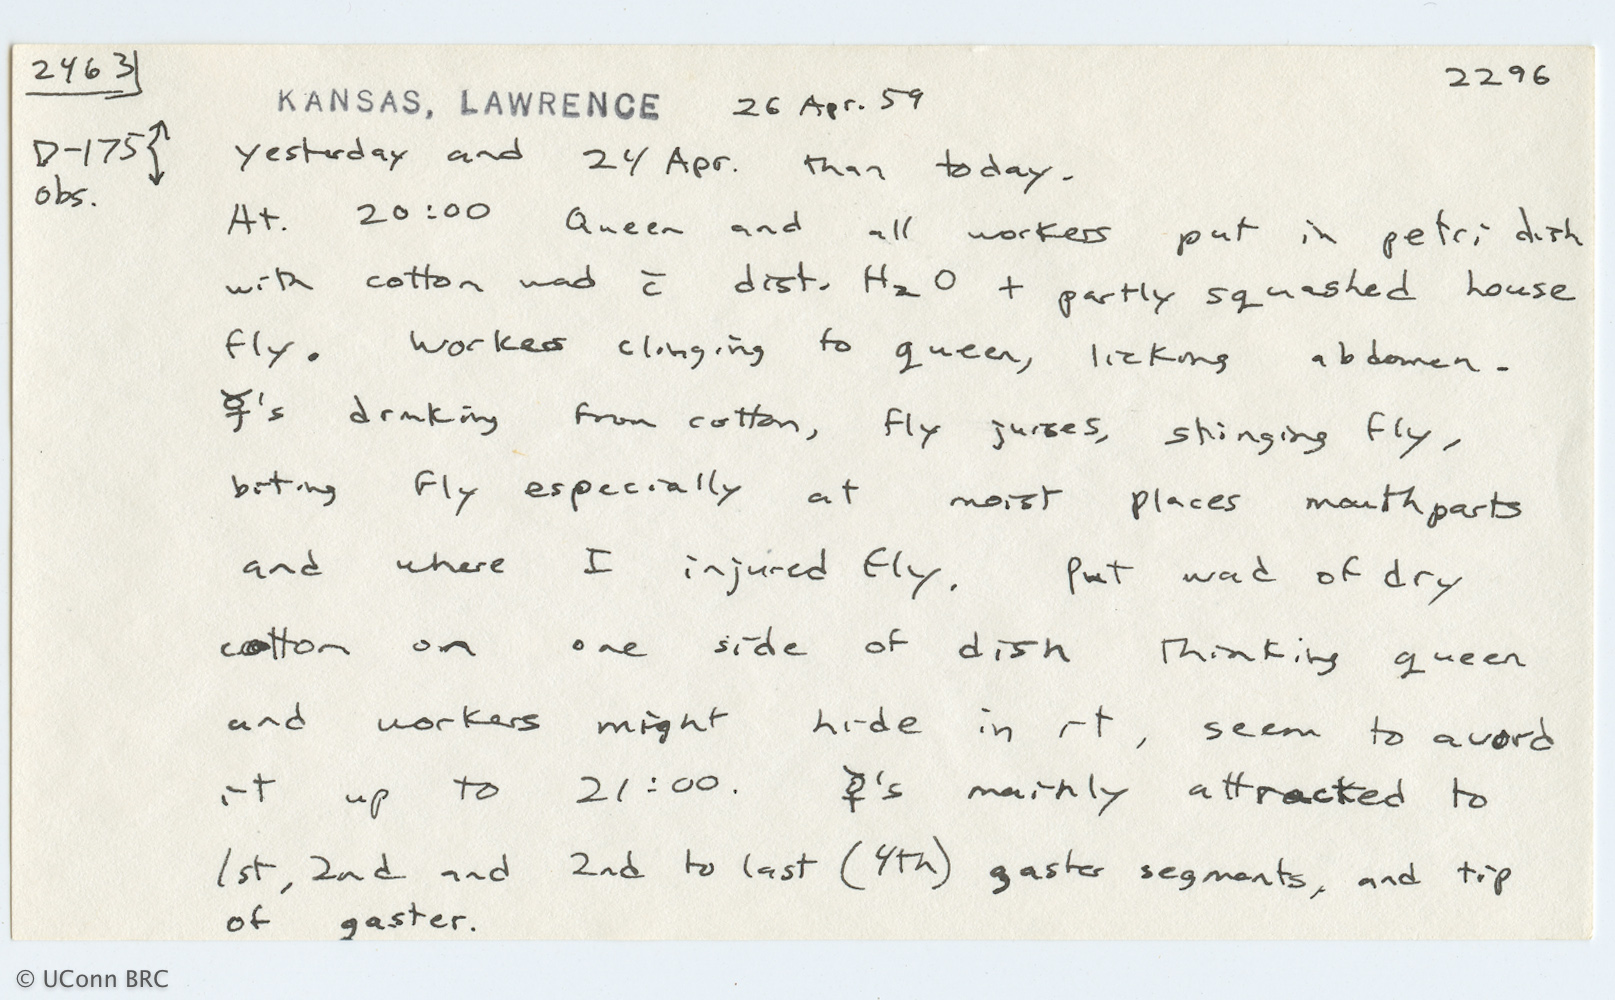 2463
2296
KANSAS, LAWRENCE 26 Apr. 59
D-175 obs.
yesterday and 24 Apr. than today.
At. 20:00 Queen and all workers put in petri dish
with cotton wad c̄ dist. H2O + partly squashed house
fly. Workers clinging to queen, licking abdomen.
☿'s drinking from cotton, fly juices, stinging fly,
biting fly especially at moist places mouthparts
and where I injured fly. Put wad of dry
cotton on one side of dish thinking queen
and workers might hide in it, seem to avoid
it up to 21:00. ☿'s mainly attracted to
1st, 2nd and 2nd to last (4th) gaster segments, and tip
of gaster.
© UConn BRC